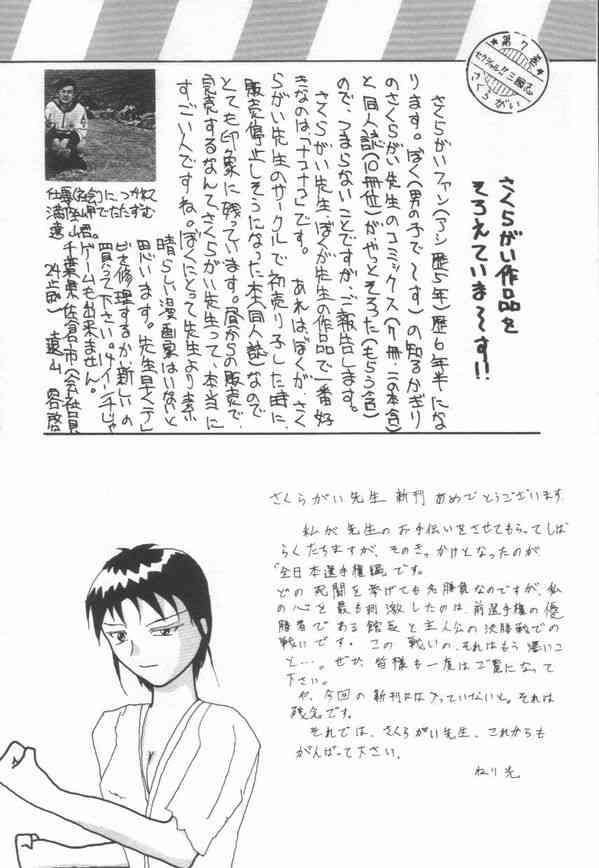 第7巻
さくらがい
さくらがい作品を
そろえていま～す!!
さくらがいファン(アシ歴5年)歴6年半にな
ります。ぼく(男の子で～す)の知るかぎり
のさくらがい先生のコミックス
と同人誌(10冊位)がやっとそろった(もらう含)
ので、つまらないことですが、ご報告します。
さくらがい先生、ぼくが先生の作品で一番好
きなのは、「ナコナコ」です。 あれはぼくが、さく
らがい先生のサークルで初売り子した時に、
販売停止しそうになった本(同人誌)なので
とても印象に残っています。昼からの販売で、
完売するなんてさくらがい先生って、本当に
すごい人ですね。ぼくにとって先生より素
晴らしい漫画家はいないと
思います。先生早くテレ
ビを修理するか、新しいの
買って下さい。
ゲームも出来ません。
千葉県佐倉市(会社員
24歳) 遠山
さくらがい先生 新刊 おめでとうございます
私が先生のお手伝いをさせてもらってしば
らくたちますが、そのきっかけとなったのが
"全日本選手権編"です。
どの死闘を挙げても名勝負なのですが、私
の心を最も刺激したのは、前選手権の優
勝者である館長と主人公の決勝戦での
戦いです。 この戦いの、それはもう凄いこ
と…。ぜひ、皆様も一度はご覧になって
下さい。
や、今回の新刊には入っていないと。それは
残念です。
それでは、さくらがい先生、これからも
がんばって下さい。